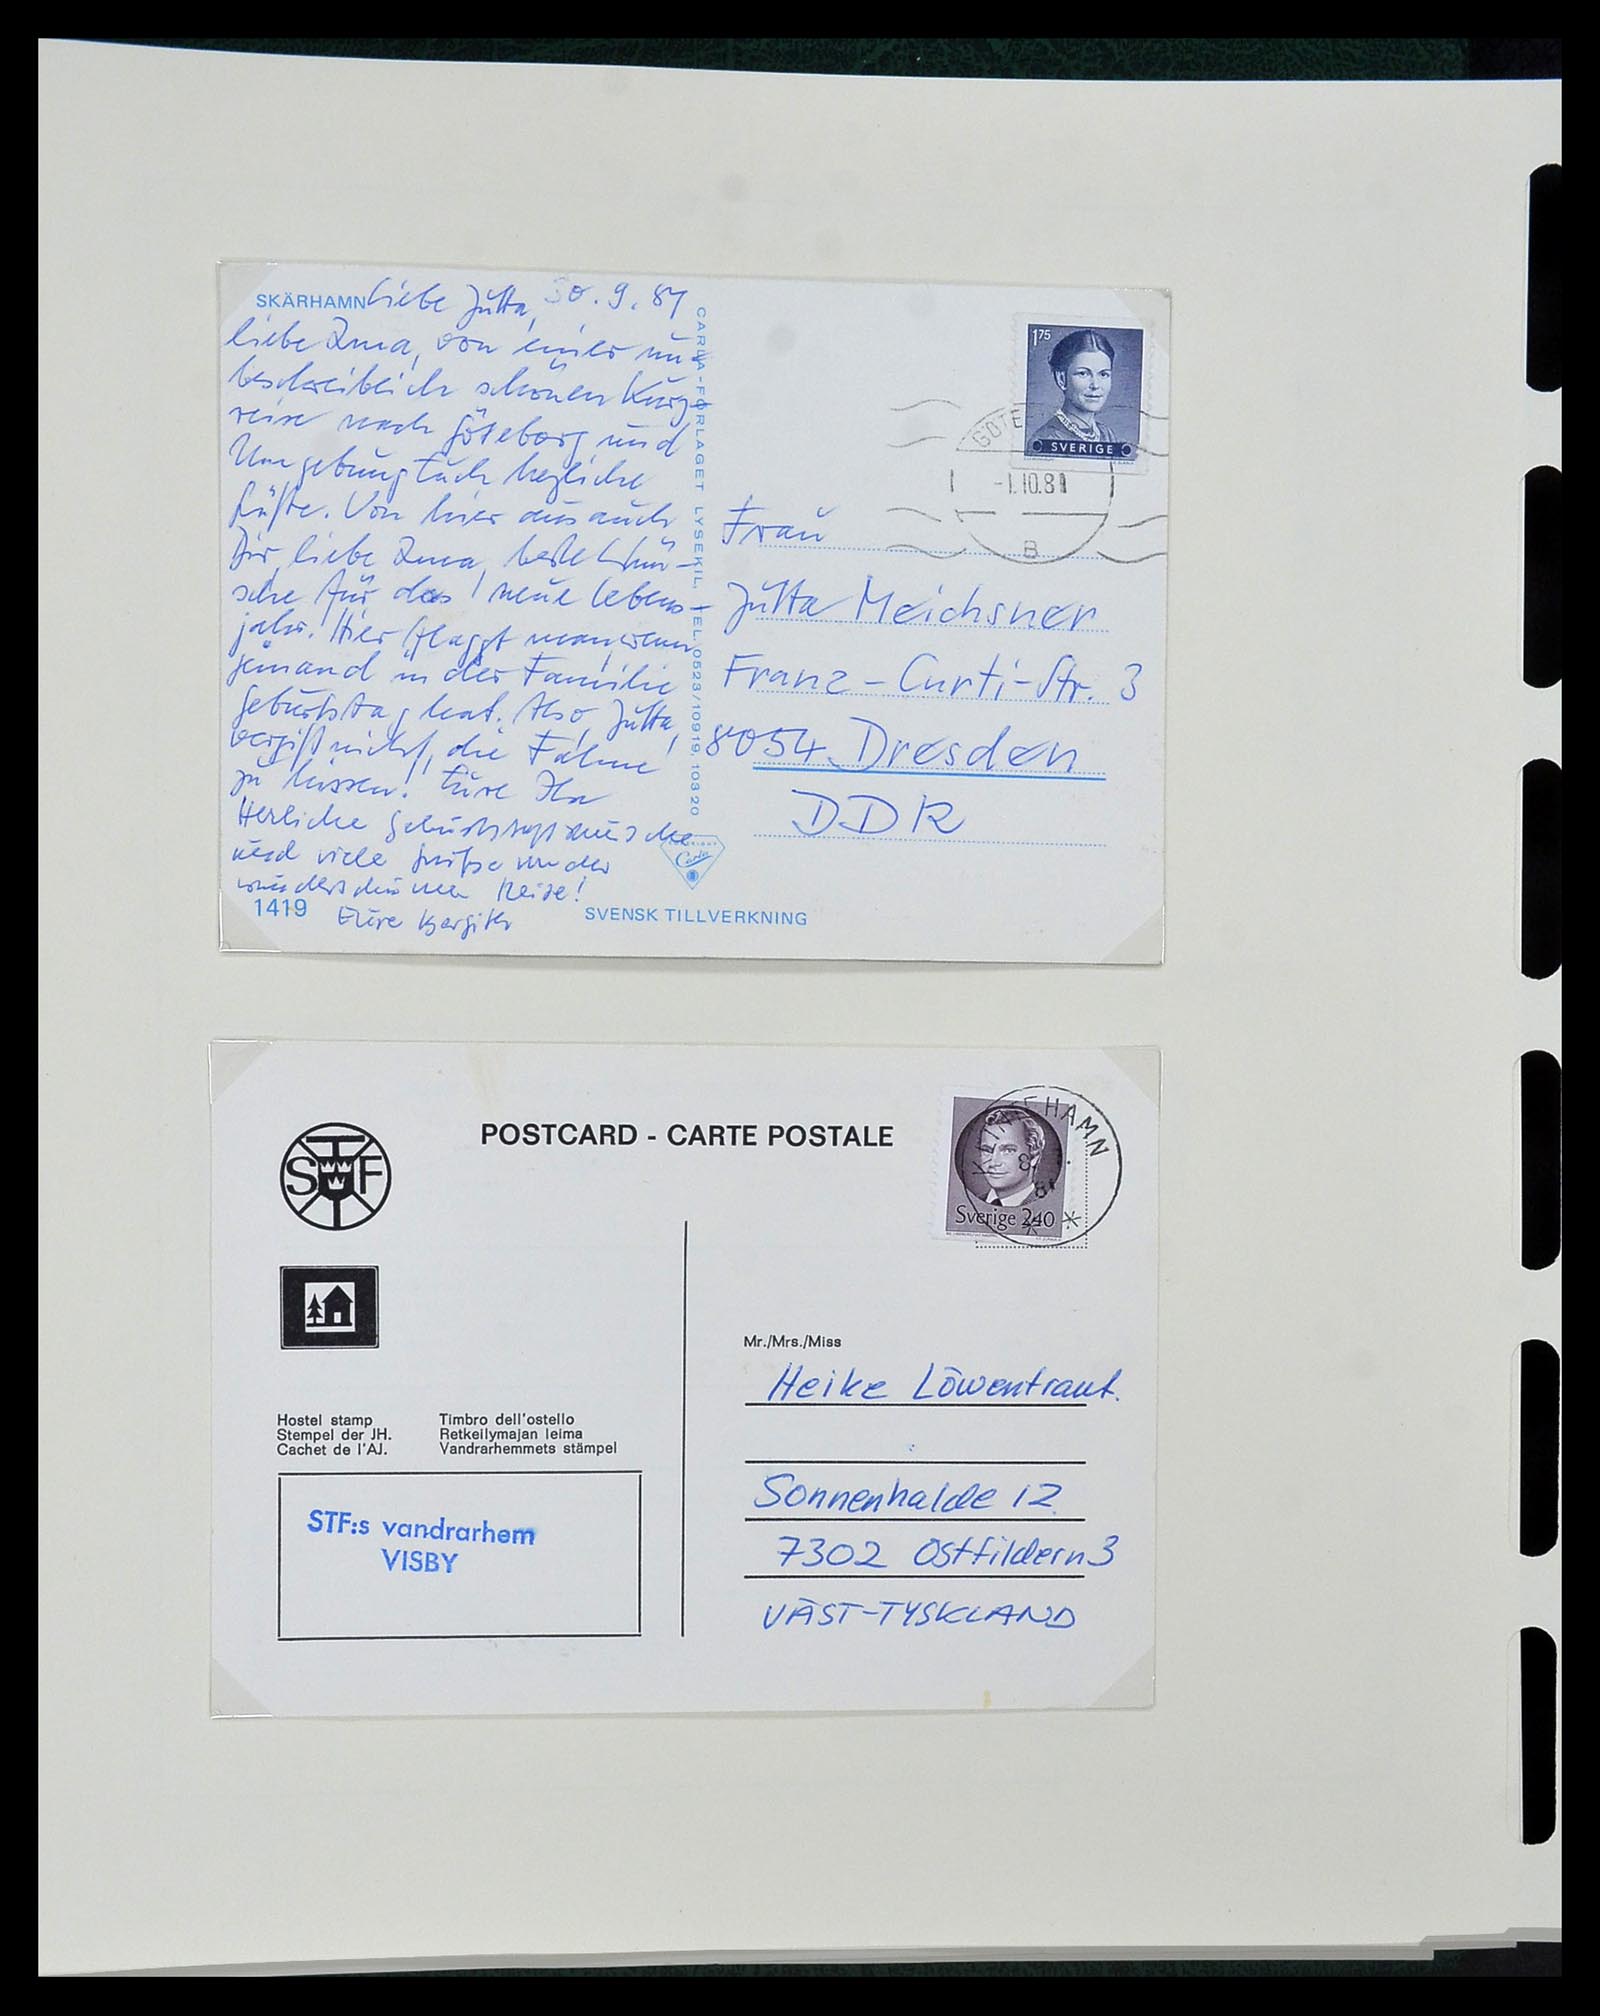 SKÄRHAMN
30.9.81
Liebe Jutta,
liebe Inna, von einer un-
beschreiblich schönen Kurz-
reise nach Göteborg und
Umgebung Euch herzliche
Grüße. Von hier aus auch
Dir, liebe Inna, beste Wün-
sche für das neue Lebens-
jahr. Hier flaggt man, wenn
jemand in der Familie
Geburtstag hat. Also, Jutta,
vergiß nicht, die Fahne
zu hissen! Eure
Herzliche Geburtstagswünsche
und viele Grüße von der
wunderschönen Reise!
Eure
1419
SVENSK TILLVERKNING
CARLA-FÖRLAGET LYSEKIL, TEL. 0523/10919, 10320
Carla
175
SVERIGE
GÖTE
-1.10.81
B
Frau
Jutta Meichsner
Franz-Curti-Str. 3
8054 Dresden
DDR
STF
POSTCARD - CARTE POSTALE
Sverige 240
HAMN
8
81
Mr./Mrs./Miss
Heike Löwentraut.
Sonnenhalde 12
7302 Ostfildern 3
VÄST-TYSKLAND
Hostel stamp
Stempel der JH.
Cachet de l'AJ.
Timbro dell'ostello
Retkeilymajan leima
Vandrarhemmets stämpel
STF:s vandrarhem
VISBY